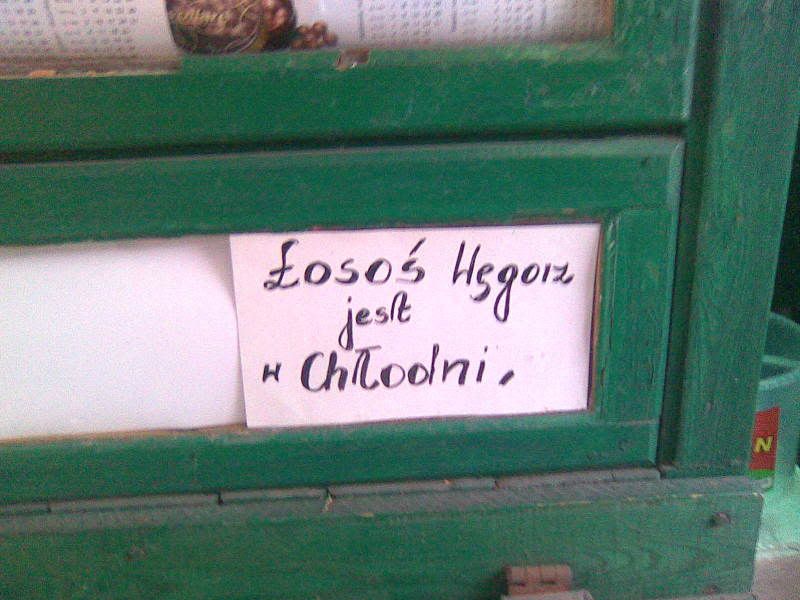 Łosoś Węgorz
jest
w Chłodni.
N